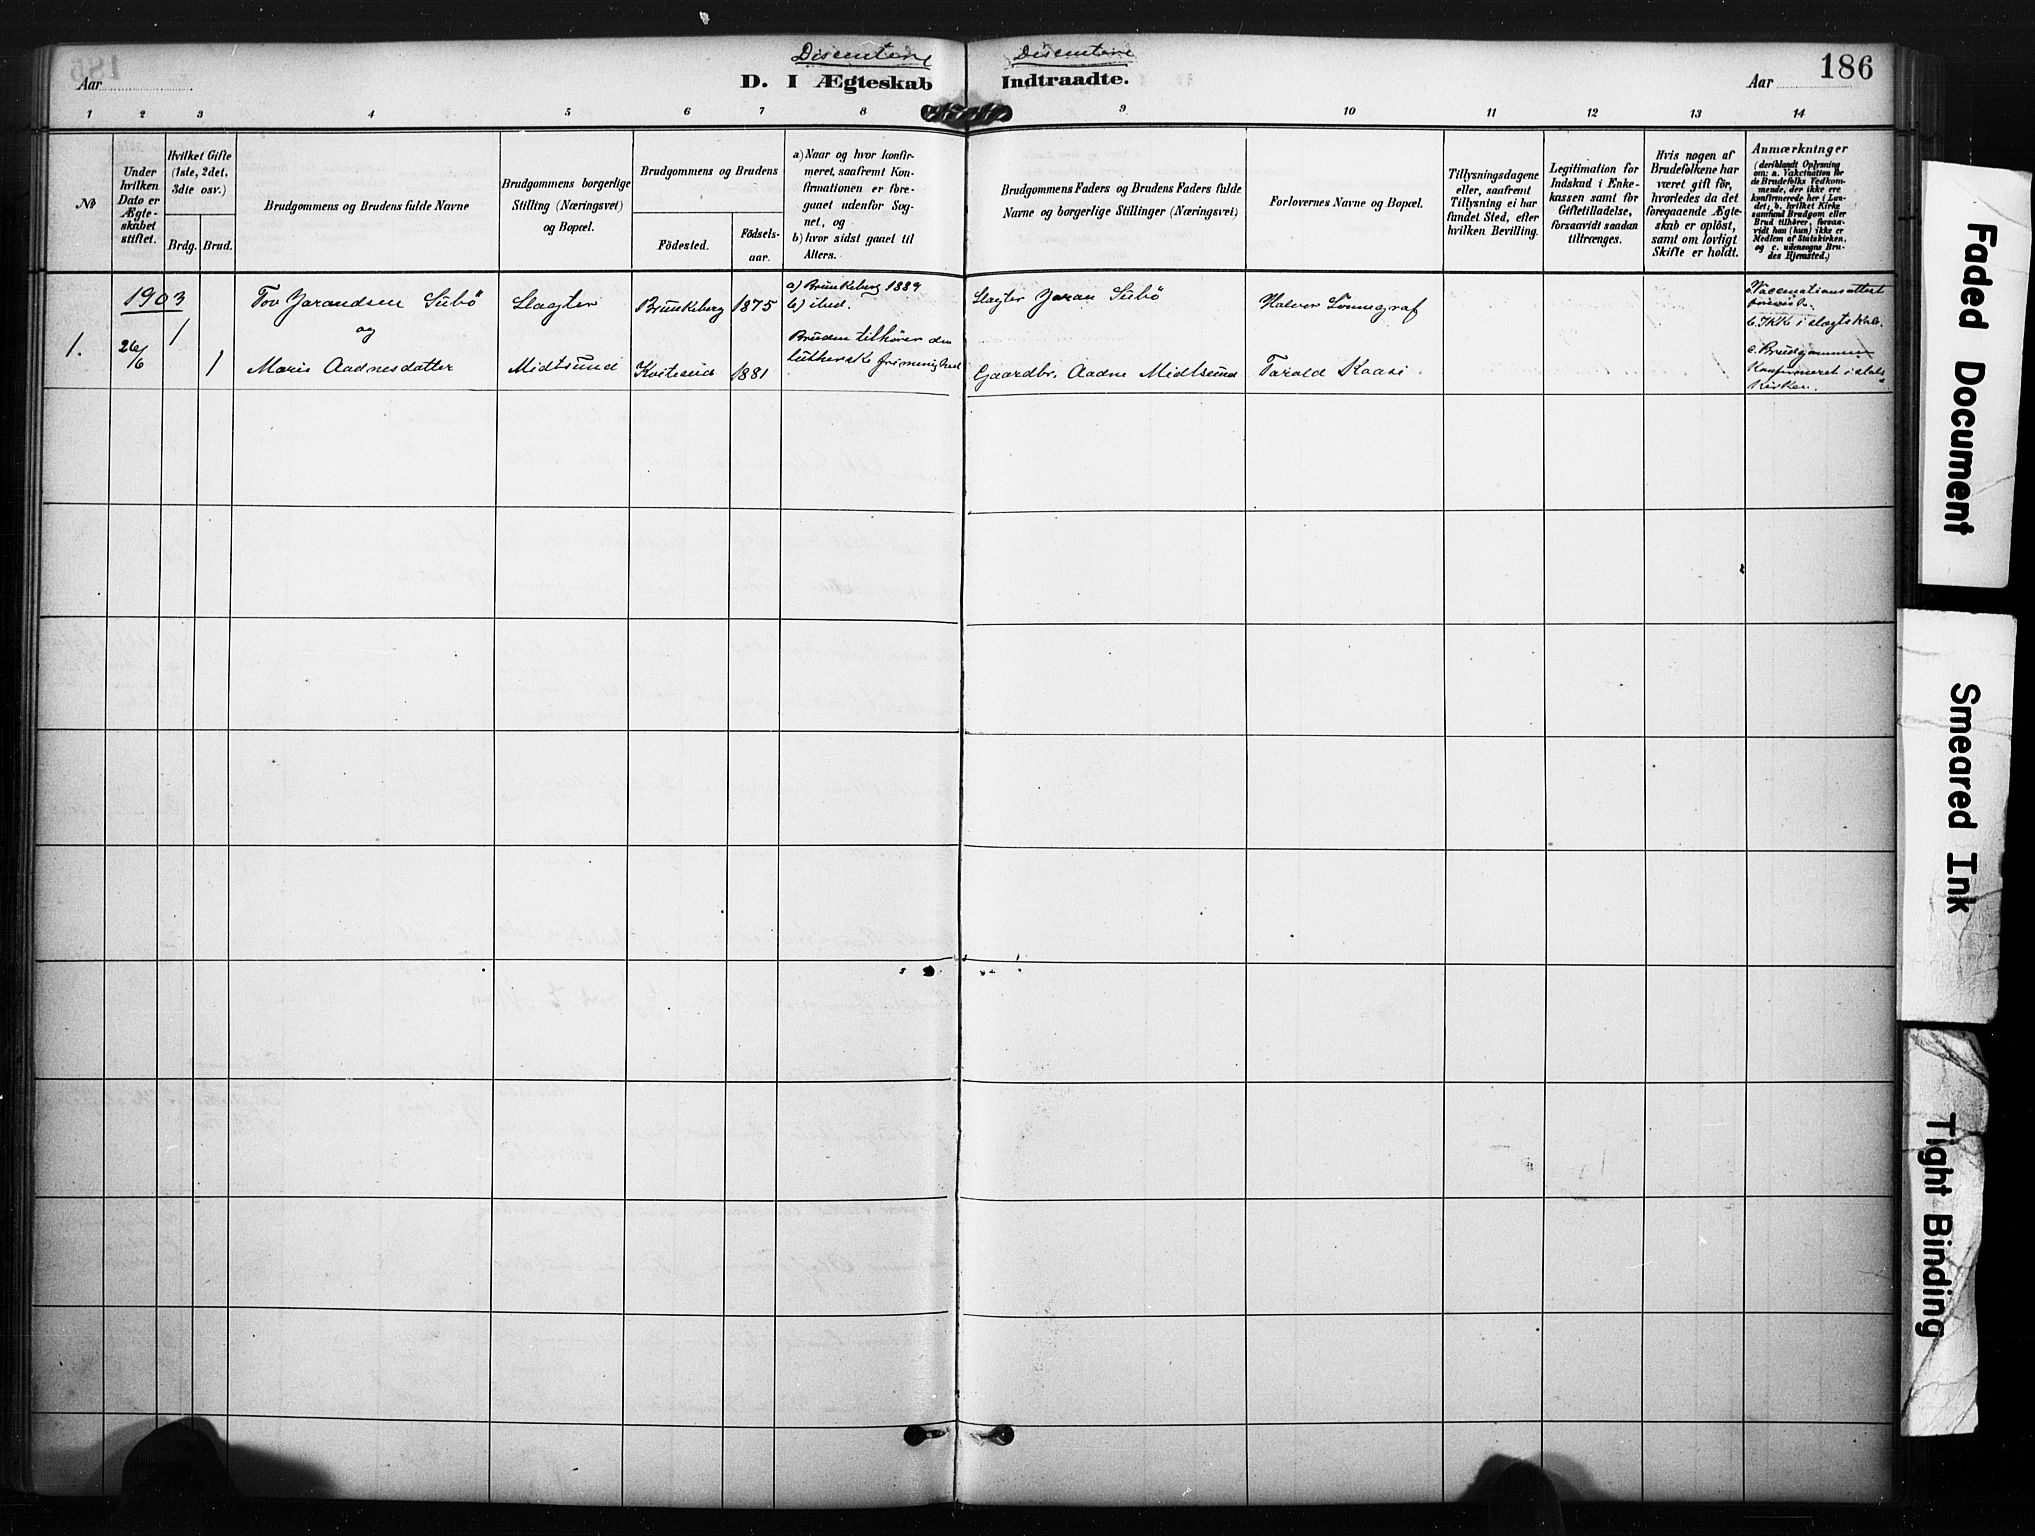 Disentere
Disentere
186
Aar
D. I Ægteskab
Indtraadte.
Aar
1 2 3 4 5 6 7 8 9 10 11 12 13 14
No
Under
hvilken
Dato er
Ægte-
skabet
stiftet.
Hvilket Gifte
(1ste, 2det,
3die osv.)
Brdg.
Brud.
Brudgommens og Brudens fulde Navne
Brudgommens borgerlige
Stilling (Næringsvei)
og Bopæl.
Brudgommens og Brudens
Födested.
Födsels-
aar.
a) Naar og hvor konfir-
meret, saafremt Kon-
firmationen er fore-
gaaet udenfor Sog-
net, og
b) hvor sidst gaaet til
Alters.
Brudgommens Faders og Brudens Faders fulde
Navne og borgerlige Stillinger (Næringsvei)
Forlovernes Navne og Bopæl.
Tillysningsdagene
eller, saafremt
Tillysning ei har
fundet Sted, efter
hvilken Bevilling.
Legitimation for
Indskud i Enke-
kassen samt for
Giftetilladelse,
forsaavidt saadan
tiltrænges.
Hvis nogen af
Brudefolkene har
været gift för,
hvorledes da det
foregaaende Ægte-
skab er oplöst,
samt om lovligt
Skifte er holdt.
Anmærkninger
(deriblandt Oplysning
om: a. Vakcination for
de Brudefolks Vedkom-
mende, der ikke ere
konfirmerede her i Lan-
det; b. hvilket Kirke
samfund Brudgom eller
Brud tilhörer, forsaa-
vidt han (hun) ikke er
Medlem af Statskirken,
og c. udensogns Bru-
des Hjemsted.)
1903
1. 26/6 1 1
Tov Jarandsen Subö
og
Maris Aadnesdatter
Slagter
Midtsund
Brunkeberg 1875
Kviteseid 1881
a) Brunkeberg 1889
b) ibid.
Bruden tilhører den
lutherske frimenighed
Slagter Jaran Subö
Gaardbr. Aadne Midtsund
Halvor Lønnegraf
Tarald Kaasi
a. Vaccinationsattest
b. Ikke i slægtskab.
c. Brudgommen
Konfirmeret i stats
Kirken.
Faded Document
Smeared Ink
Tight Binding